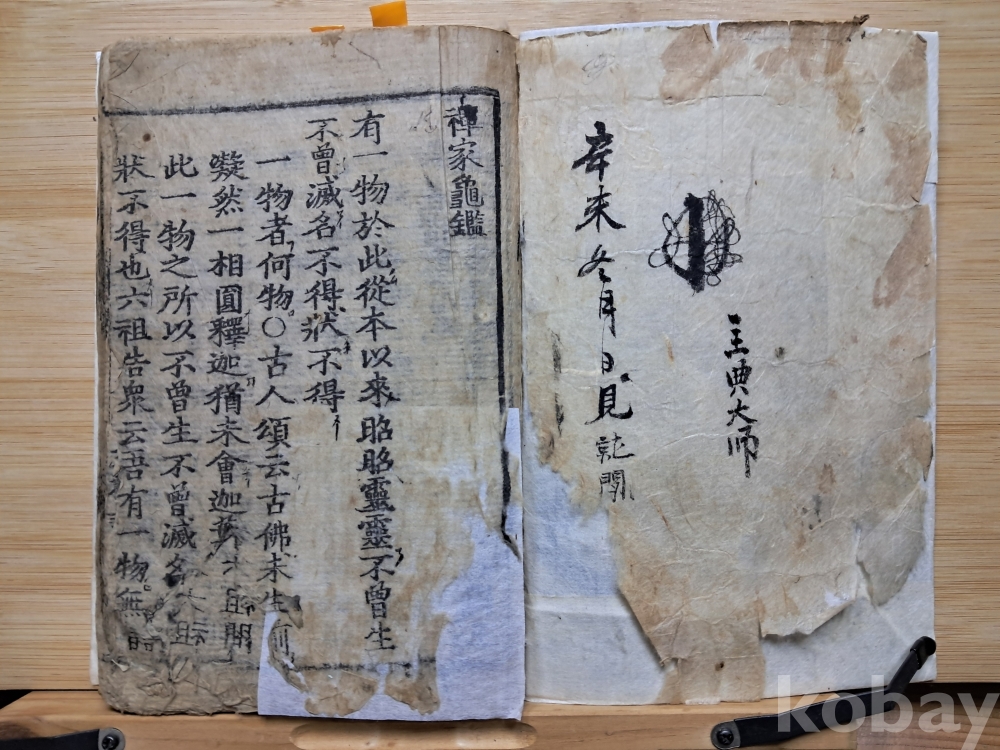 大师
辛未冬月日見
禪家龜鑑
有一物於此從本以來昭昭靈靈不曾生
不曾滅名不得狀不得
一物者何物○古人頌云古佛未生前
凝然一相圓釋迦猶未會迦葉
此一物之所以不曾生不曾滅名
狀不得也六祖告衆云吾有一物無
kobay